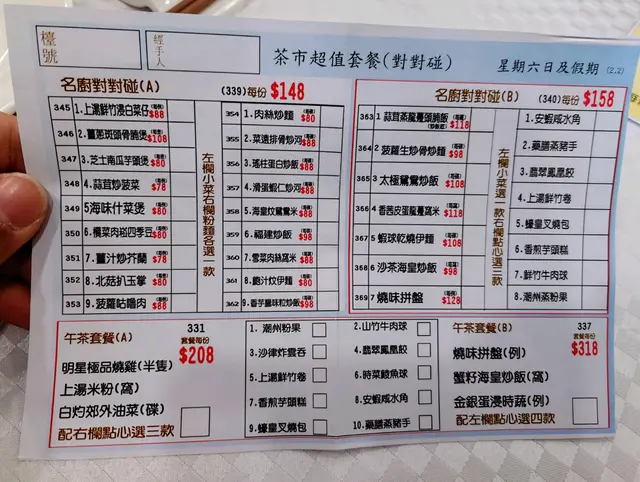 檯號
經手人
茶市超值套餐(對對碰)
星期六日及假期 (2.2)
名廚對對碰(A) (339)每份 $148
345 1.上湯鮮竹浸白菜仔 $88
346 2.薑葱斑頭骨腩煲 $108
347 3.芝士南瓜芋頭煲 $80
348 4.蒜茸炒菠菜 $78
349 5海味什菜煲 $80
350 6.欖菜肉崧四季豆 $80
351 7.薑汁炒芥蘭 $78
352 8.北菇扒玉掌 $80
353 9.菠蘿咕嚕肉 $88
左欄小菜右欄粉麵各選一款
354 1.肉絲炒麵 $80
355 2.菜遠排骨炒河 $88
356 3.瑤柱蛋白炒飯 $88
357 4.滑蛋蝦仁炒河 $88
358 5.海皇炆鴛鴦米 $88
359 6.福建炒飯 $98
360 7.雪菜肉絲窩米 $88
361 8.鮑汁炆伊麵 $80
362 9.香芋臘味粒炒飯 $98
名廚對對碰(B) (340)每份 $158
363 1 蒜茸蒸龍躉頭腩飯 $118
364 2 菠蘿生炒骨炒麵 $98
365 3 太極鴛鴦炒飯 $108
366 4 香茜皮蛋龍躉窩米 $118
367 5 蝦球乾燒伊麵 $108
368 6 沙茶海皇炒飯 $98
369 7 燒味拼盤 $128
左欄小菜選一款右欄點心選三款
1.安蝦咸水角
2.藥膳蒸豬手
3.翡翠鳳凰餃
4.上湯鮮竹卷
5.蠔皇叉燒包
6.香煎芋頭糕
7.鮮竹牛肉球
8.潮州蒸粉果
午茶套餐(A)
331
套餐每份
$208
明星極品燒雞(半隻)
上湯米粉(窩)
白灼郊外油菜(碟)
配右欄點心選三款
1.潮州粉果
2.山竹牛肉球
3.沙律炸雲吞
4.翡翠鳳凰餃
5.上湯鮮竹卷
6.時菜鯪魚球
7.香煎芋頭糕
8.安蝦咸水角
9.蠔皇叉燒包
10.藥膳蒸豬手
午茶套餐(B)
337
套餐每份
$318
燒味拼盤(例)
蟹籽海皇炒飯(窩)
金銀蛋浸時蔬(例)
配左欄點心選四款